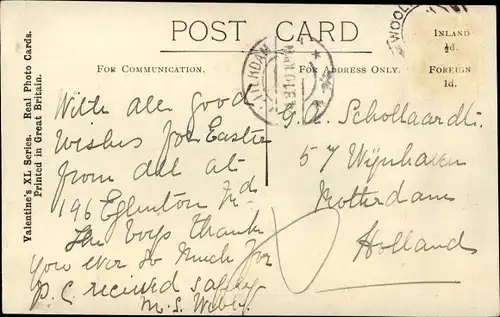 POST CARD
WOOL
INLAND
½d.
FOREIGN
1d.
FOR COMMUNICATION.
FOR ADDRESS ONLY.
Valentine's XL Series. Real Photo Cards.
Printed in Great Britain.
With all good
wishes for Easter
from all at
196 Eglinton Rd
The boys thank
you ever so much for
P.C received safely
M. S.
57 Wijnhaven
Rotterdam
Holland